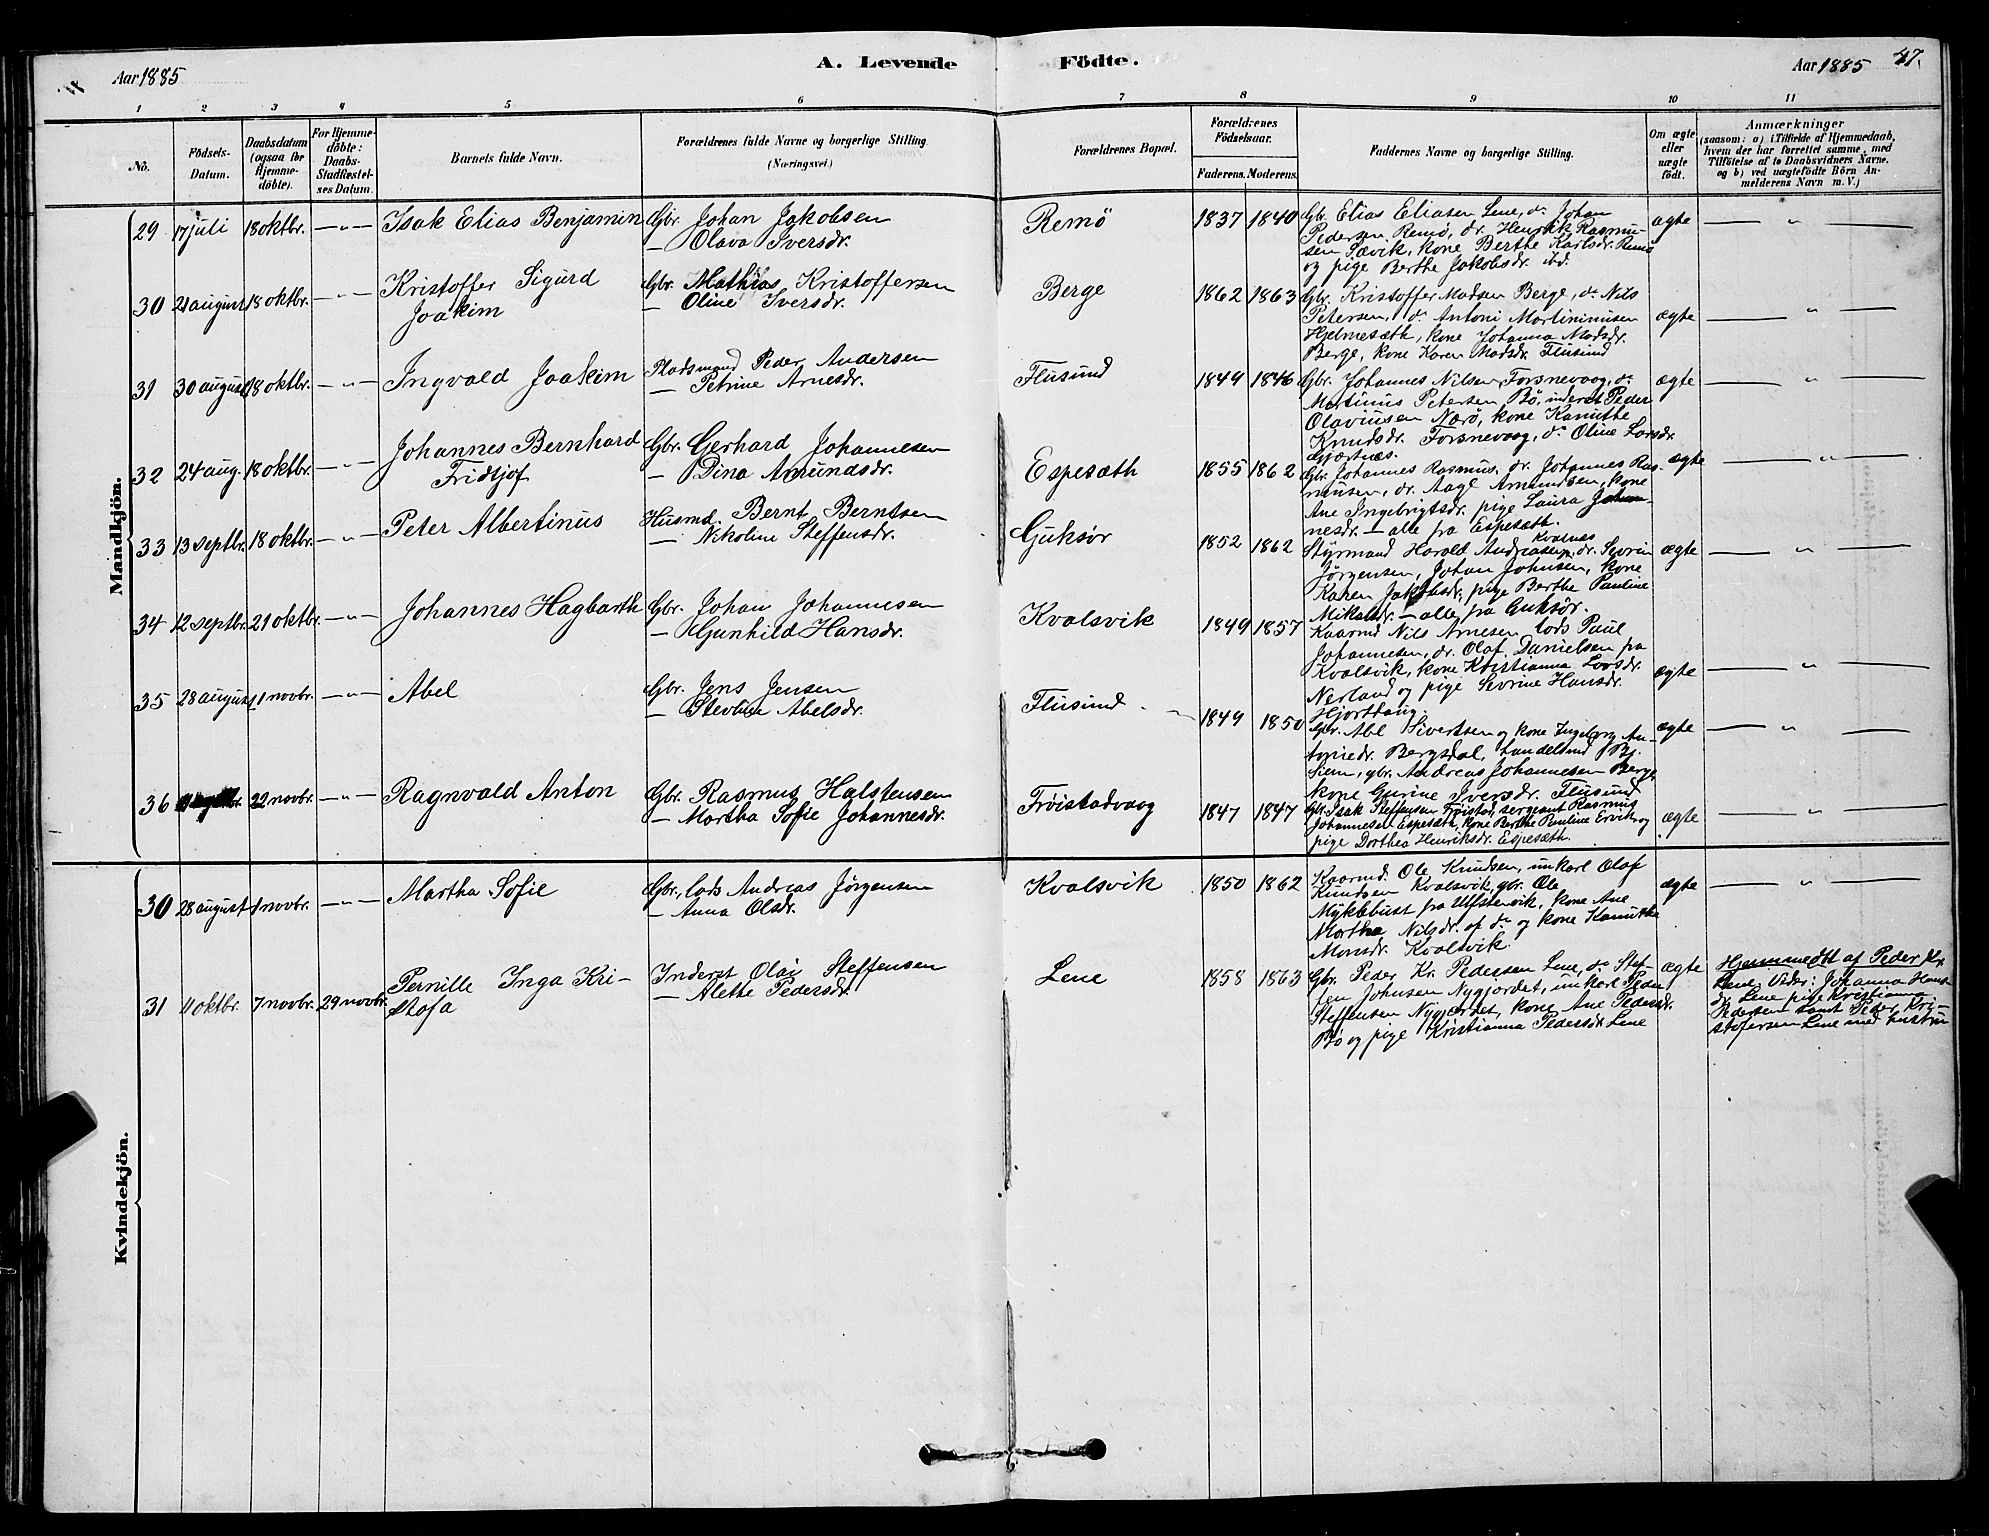 Aar 1885
A. Levende Födte.
Aar 1885
47.
1 2 3 4 5 6 7 8 9 10 11
No.
Födsels-
Datum.
Daabsdatum
(ogsaa for
Hjemme-
döbte).
For Hjemme-
döbte:
Daabs-
Stadfæstel-
ses Datum.
Barnets fulde Navn.
Forældrenes fulde Navne og borgerlige Stilling.
(Næringsvei.)
Forældrenes Bopæl.
Forældrenes
Födselsaar.
Faderens. Moderens.
Faddernes Navne og borgerlige Stilling.
Om ægte
eller
uægte
födt.
Anmærkninger
(saasom: a) i Tilfælde af Hjemmedaab,
hvem der har forrettet samme, med
Tilföielse af to Daabsvidners Navne.
og b) ved uægtefödte Börn An-
melderens Navn m. V.)
Mandkjön.
29 17 juli 18 oktbr. — " — Isak Elias Benjamin
Gbr. Johan Jakobsen
— Olava Iversdr.
Remö 1837 1840
Gbr. Elias Eliasen Lene, do Johan
Pedersen Remö, dr. Henrik Rasmu-
sen Sævik, kone Berthe Karlsdr. Remö
og pige Berthe Jakobsdr. ibd.
ægte — " —
30 21 august 18 oktbr. — " — Kristoffer Sigurd
Joakim
Gbr. Mathias Kristoffersen
— Oline Iversdr.
Berge 1862 1863
Gbr. Kristoffer Madsen Berge, do Nils
Petersen, do Antoni Martinimusen
Hjelmesæth, kone Johanna Madsdr.
Berge, kone Karen Madsdr. Flusund
ægte — " —
31 30 august 18 oktbr. — " — Ingvald Joakim
Pladsmand Peder Andersen
— Petrine Arnesdr.
Flusund 1849 1846
Gbr. Johannes Nilsen Forsnevaag, do
Martinus Petersen Bö, inderst Peder
Olaviusen Nærö, kone Kanuthe
Knudsdr. Forsnevaag, do Oline Larsdr.
Gjertnes.
ægte — " —
32 24 aug. 18 oktbr. — " — Johannes Bernhard
Fridtjof
Gbr. Gerhard Johannesen
— Dina Amundsdr.
Espesæth 1855 1862
Gbr. Johannes Rasmus. dr. Johannes Ras-
musen, dr. Aage Amundsen, kone
Ane Ingebrigtsdr. pige Laura Johan-
nesdr. — alle fra Espesæth.
ægte — " —
33 13 septbr. 18 oktbr. — " — Peter Albertinus
Husmd. Bernt Berntsen
— Nikoline Steffensdr.
Guksör 1852 1862
Kvalnes
Styrmand Harald Andreasen, dr. Sevrin
Jörgensen, Johan Johnsen, kone
Karen Jakobsdr, pige Berthe Pauline
Mikalsdr. — alle fra Guksör.
ægte — " —
34 12 septbr. 21 oktbr. — " — Johannes Hagbarth
Gbr. Johan Johannesen
— Gunhild Hansdr.
Kvalsvik 1849 1857
Kaarmd Nils Arnesen lods Paul
Johannesen, dr. Olaf Danielsen fra
Kvalsvik, kone Kristianna Larsdr.
Nerland og pige Sevrine Hansdr.
Hjorthaug.
ægte — " —
35 28 august 1 novbr. — " — Abel
Gbr. Jens Jensen
— Abelsdr.
Flusund 1849 1850
Gbr. Abel Sivertsen og kone Ingeborg An-
toniedr. Bergsdal, handelsmd Bj.
Siem, gbr. Andreas Johannesen Berge,
kone Gurine Iversdr. Flusund
ægte — " —
36 22 novbr. — " — Ragnvald Anton
Gbr. Rasmus Halstensen
— Martha Sofie Johannesdr.
Fröistadvaag 1847 1847
Gbr. Isak Steffensen Fröistad, sergeant Rasmus
Johannesen Espesæth, kone Berthe Pauline Ervik, og
pige Dorthea Henriksdr. Espesæth.
ægte — " —
Kvindekjön.
30 28 august 1 novbr. — " — Martha Sofie
Gbr., lods Andreas Jörgensen
— Anna Olsdr.
Kvalsvik 1850 1862
Kaarmd. Ole Knudsen, unkarl Olaf
Knudsen Kvalsvik, gbr. Ole
Myklebust fra Ulfstenvik, kone Ane
Martha Nilsdr. af do og kone Kanuthe
Monsdr. Kvalsvik.
ægte — " —
31 11 oktbr. 7 novbr. 29 novbr. Pernille Inga Kri-
stofa
Inderst Olai Steffensen
— Alethe Pedersdr.
Lene 1858 1863
Gbr. Peder Kr. Pedersen Lene, do Stef
fen Johnsen Nygjordet, unkarl Peder
Steffensen Nygjordet, kone Ane Pedersdr.
Bö og pige Kristianna Pedersdr. Lene
ægte
Hjemmedöbt af Peder Kr.
Lene. Vidr: Johanna Hans-
dr. Lene pige Kristianna
Pedersen samt Peder Kri-
stofersen Lene med hustru